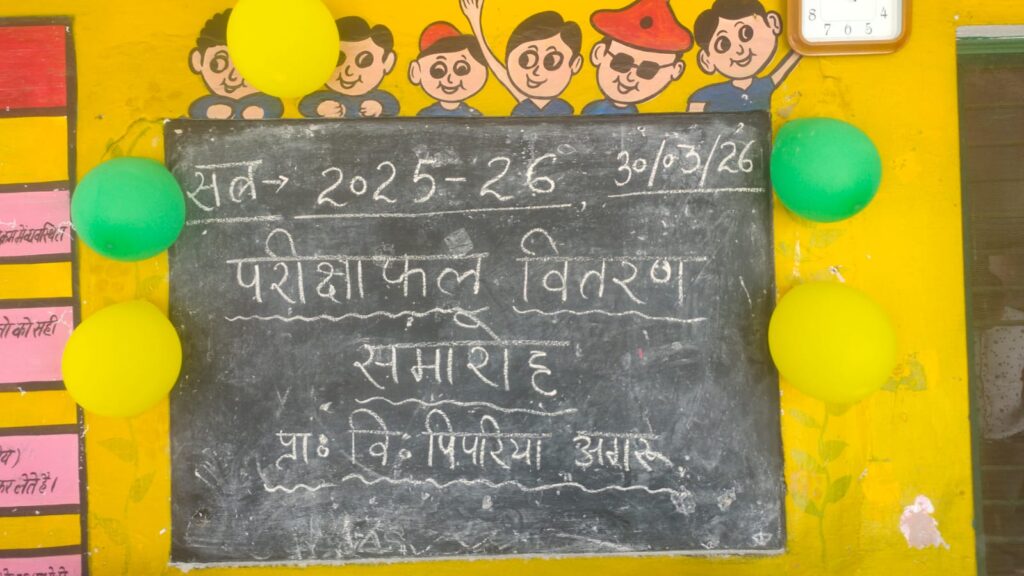 सत्र→ 2025-26, 30/03/26
परीक्षाफल वितरण
समारोह
प्रा॰ वि॰ पिपरिया अगरू
8 7 6 5 4
क्रमव्यवस्थित
को सही
कर लेते है।